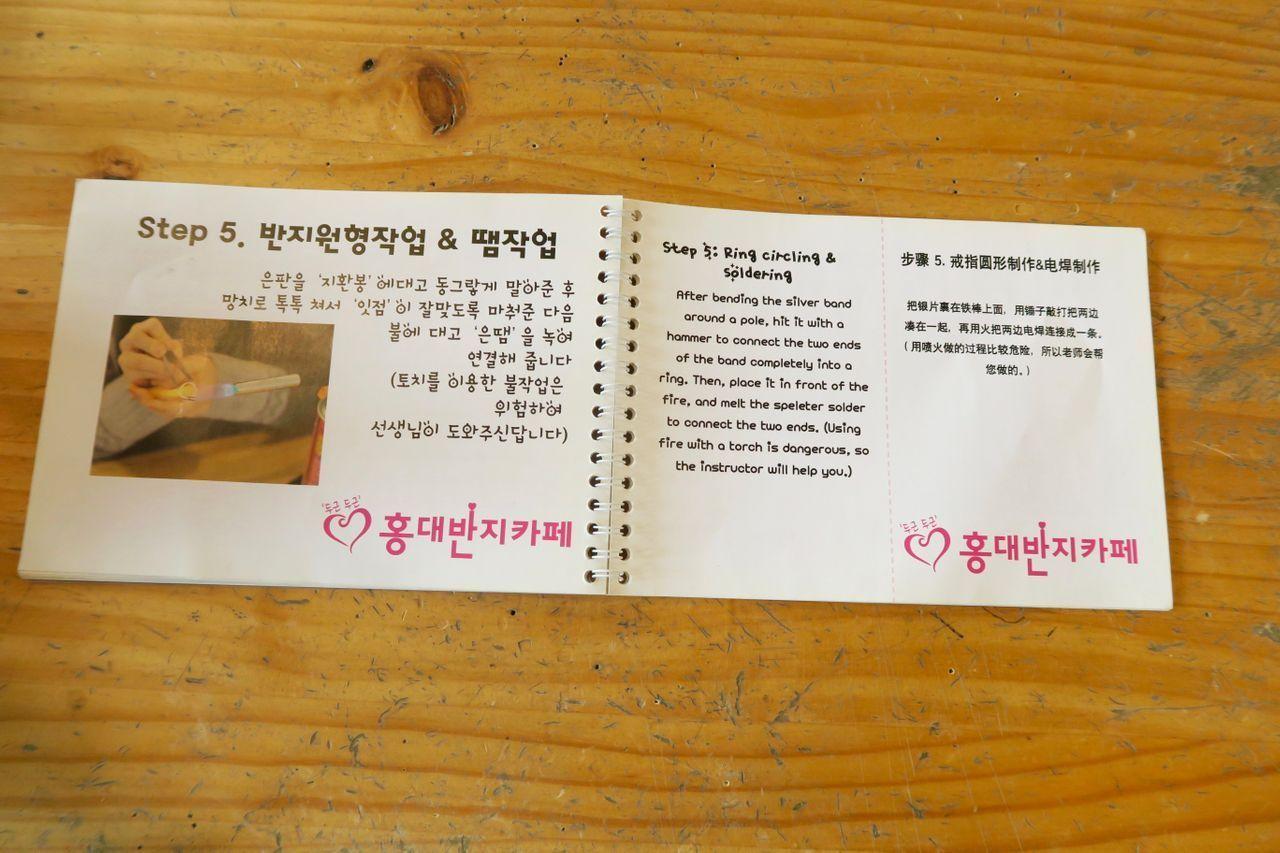 Step 5. 반지원형작업 & 땜작업
은판을 '지환봉'에대고 동그랗게 말아준 후
망치로 톡톡 쳐서 '잇점'이 잘맞도록 마춰준 다음
불에 대고 '은땜'을 녹여
연결해 줍니다
(토치를 이용한 불작업은
위험하여
선생님이 도와주신답니다)
'두근 두근'
홍대반지카페
Step 5: Ring circling &
soldering
After bending the silver band
around a pole, hit it with a
hammer to connect the two ends
of the band completely into a
ring. Then, place it in front of the
fire, and melt the speleter solder
to connect the two ends. (Using
fire with a torch is dangerous, so
the instructor will help you.)
步骤 5. 戒指圆形制作&电焊制作
把银片裹在铁棒上面，用锤子敲打把两边
凑在一起，再用火把两边电焊连接成一条。
(用喷火做的过程比较危险，所以老师会帮
您做的。)
'두근 두근'
홍대반지카페